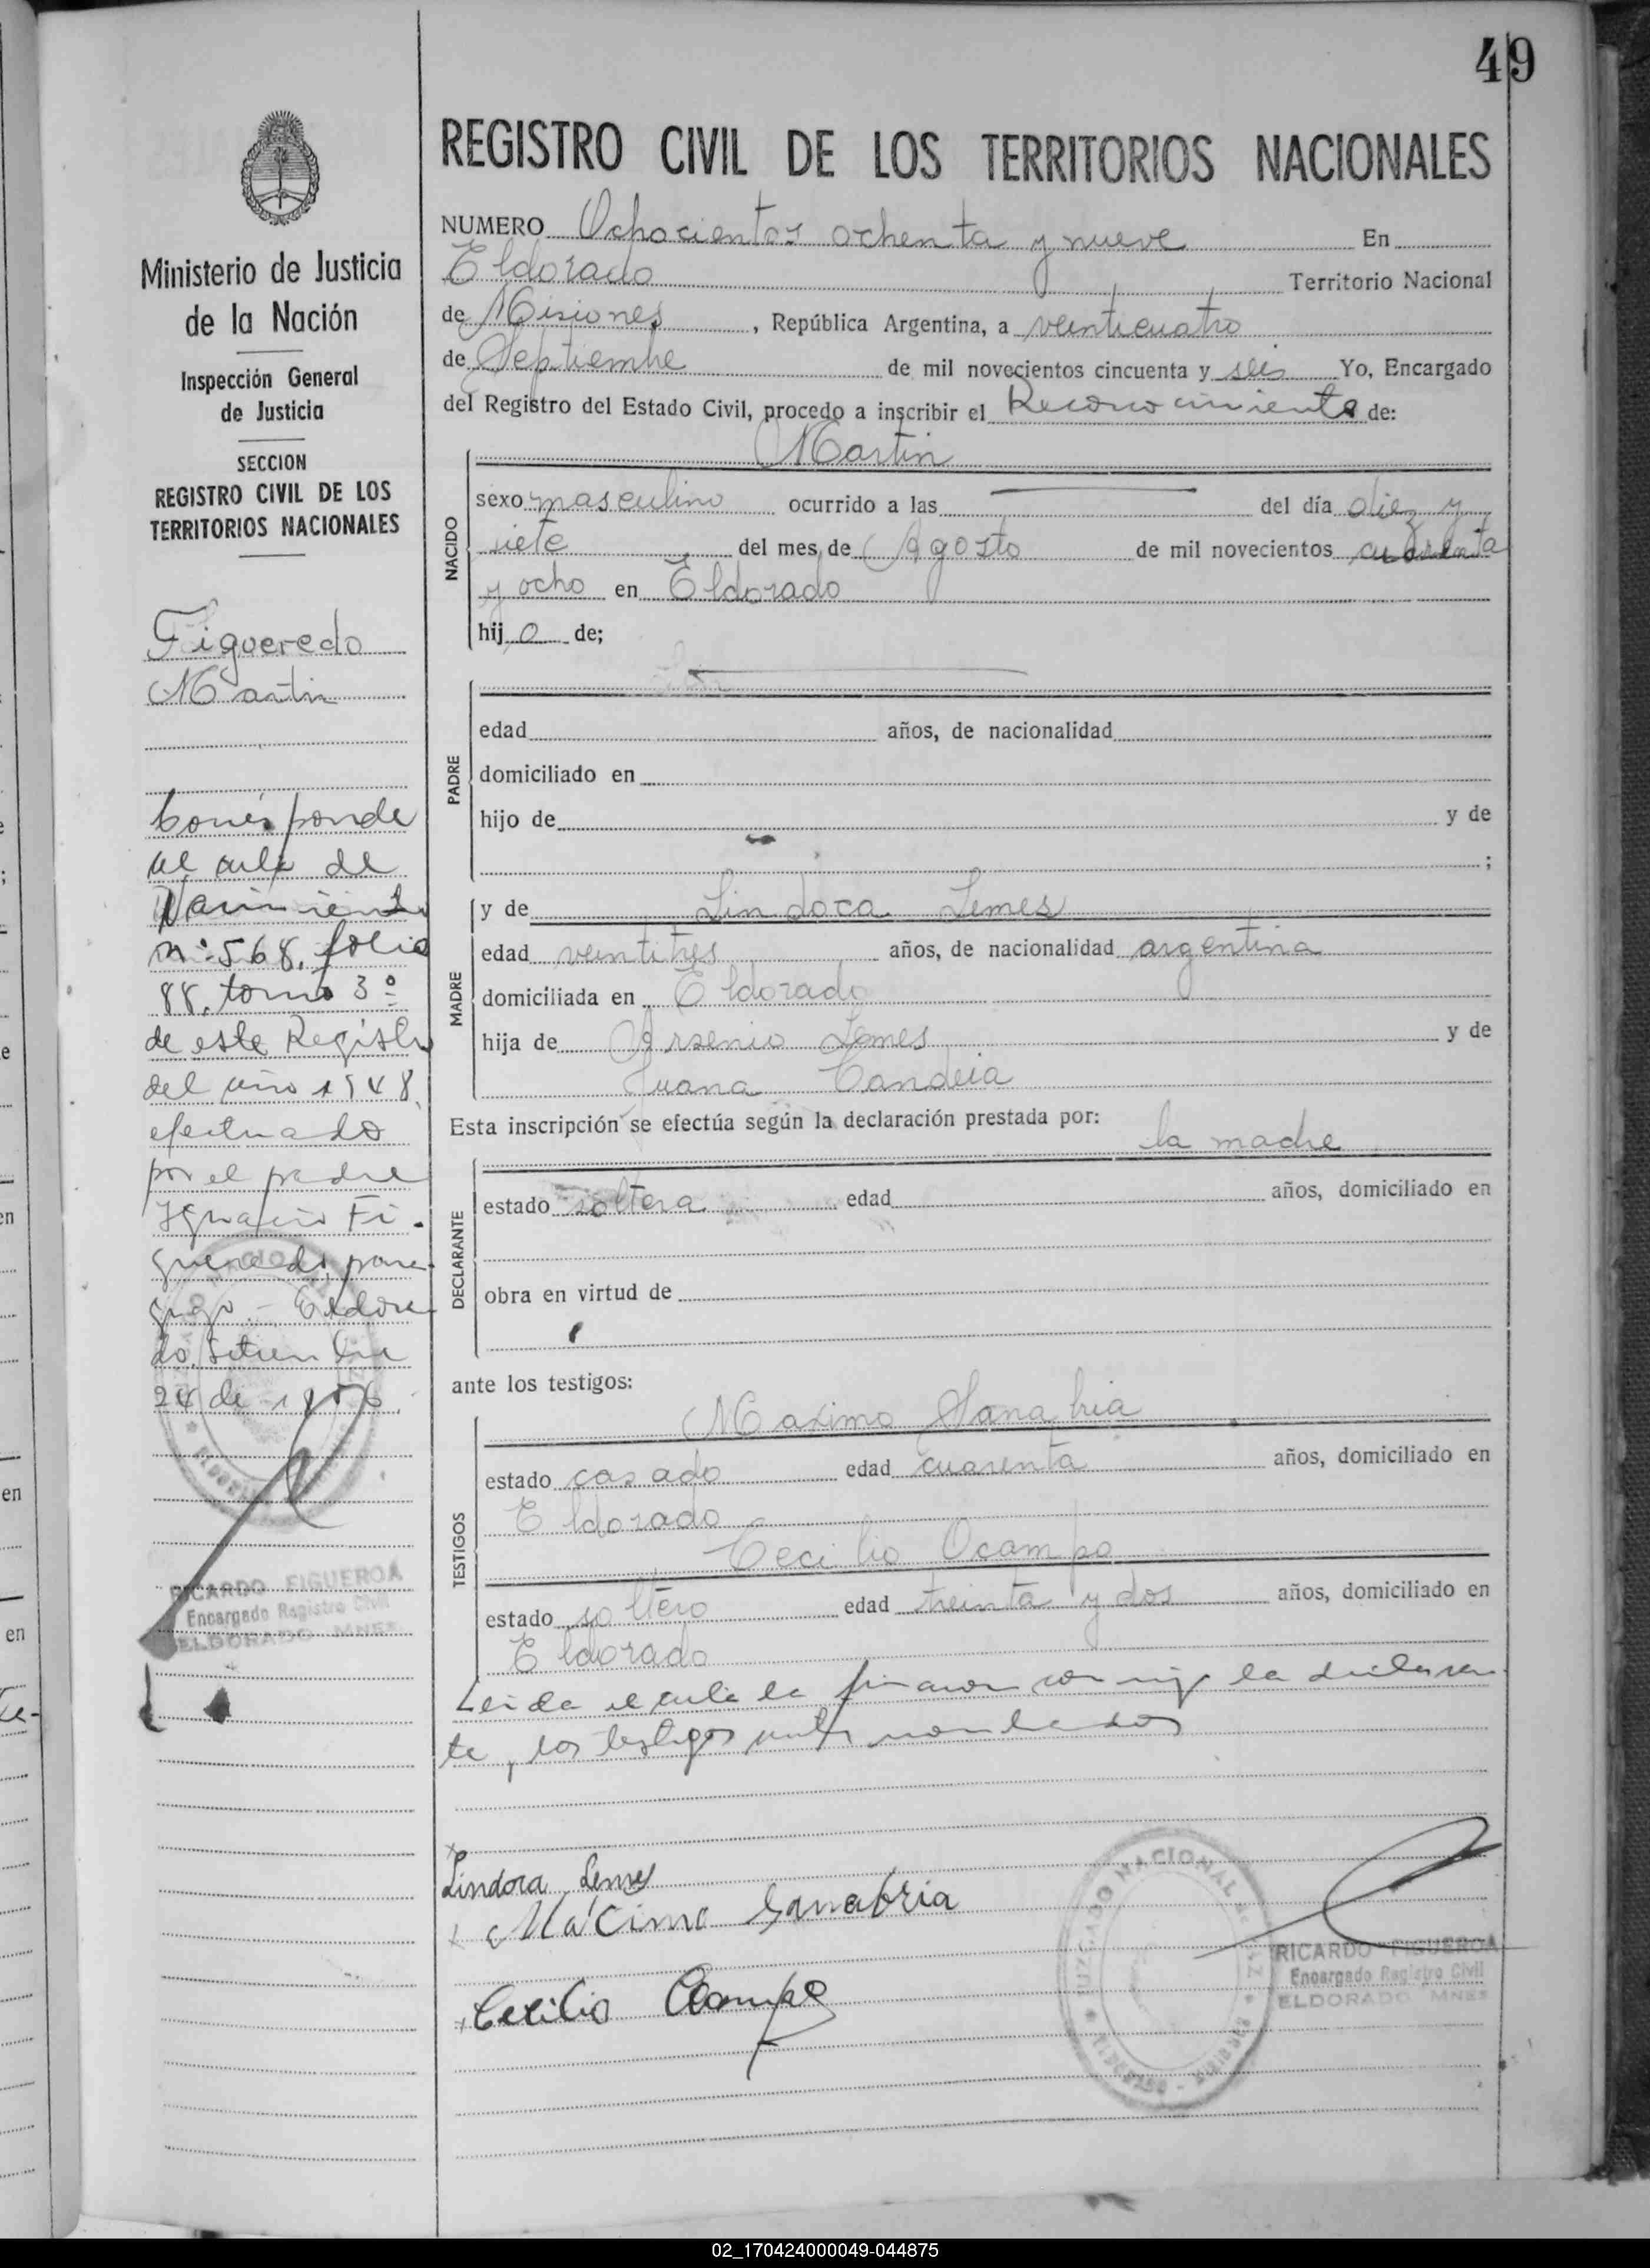 49
REGISTRO CIVIL DE LOS TERRITORIOS NACIONALES
Ministerio de Justicia
de la Nación
Inspección General
de Justicia
SECCION
REGISTRO CIVIL DE LOS
TERRITORIOS NACIONALES
Figueredo
Martin
Corresponde
al acta de
Nacimiento
nº 568, folio
88, tomo 3º
de este Registro
del año 1948,
efectuado
por el padre
Ignacio Fi-
gueredo, para-
guayo - Eldora-
do, Setiembre
24 de 1956.
RICARDO FIGUEROA
Encargado Registro Civil
ELDORADO MNES
NUMERO Ochocientos ochenta y nueve En
Eldorado Territorio Nacional
de Misiones, República Argentina, a veinticuatro
de Septiembre de mil novecientos cincuenta y seis Yo, Encargado
del Registro del Estado Civil, procedo a inscribir el Reconocimiento de:
Martin
NACIDO
sexo masculino ocurrido a las del día diez y
siete del mes de Agosto de mil novecientos cuarenta
y ocho en Eldorado
hijo de;
PADRE
edad años, de nacionalidad
domiciliado en
hijo de y de
;
MADRE
y de Lindoca Lemes
edad veintitres años, de nacionalidad argentina
domiciliada en Eldorado
hija de Arsenio Lemes y de
Juana Candeia
Esta inscripción se efectúa según la declaración prestada por:
la madre
DECLARANTE
estado soltera edad años, domiciliado en
obra en virtud de
ante los testigos:
TESTIGOS
Maximo Sanabria
estado casado edad cuarenta años, domiciliado en
Eldorado
Cecilio Ocampo
estado soltero edad treinta y dos años, domiciliado en
Eldorado
Leida el acta la firman conmigo la declaran-
te y los testigos antes nombrados
Lindora Lemes
Mácimo Sanabria
Cecilio Ocampo
JUZGADO NACIONAL DE PAZ
ELDORADO - MISIONES
RICARDO FIGUEROA
Encargado Registro Civil
ELDORADO MNES
02_170424000049-044875